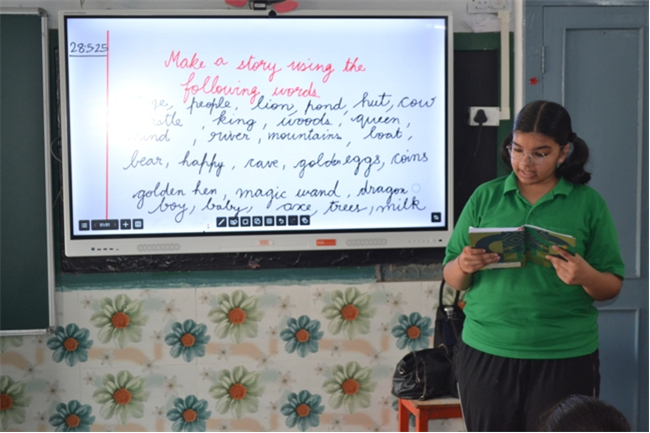 28.5.25
Make a story using the
following words
people, lion, pond, hut, cow
, king, woods, queen,
, river, mountains, boat,
bear, happy, cave, golden eggs, coins
golden hen, magic wand, dragon
boy, baby, axe, trees, milk